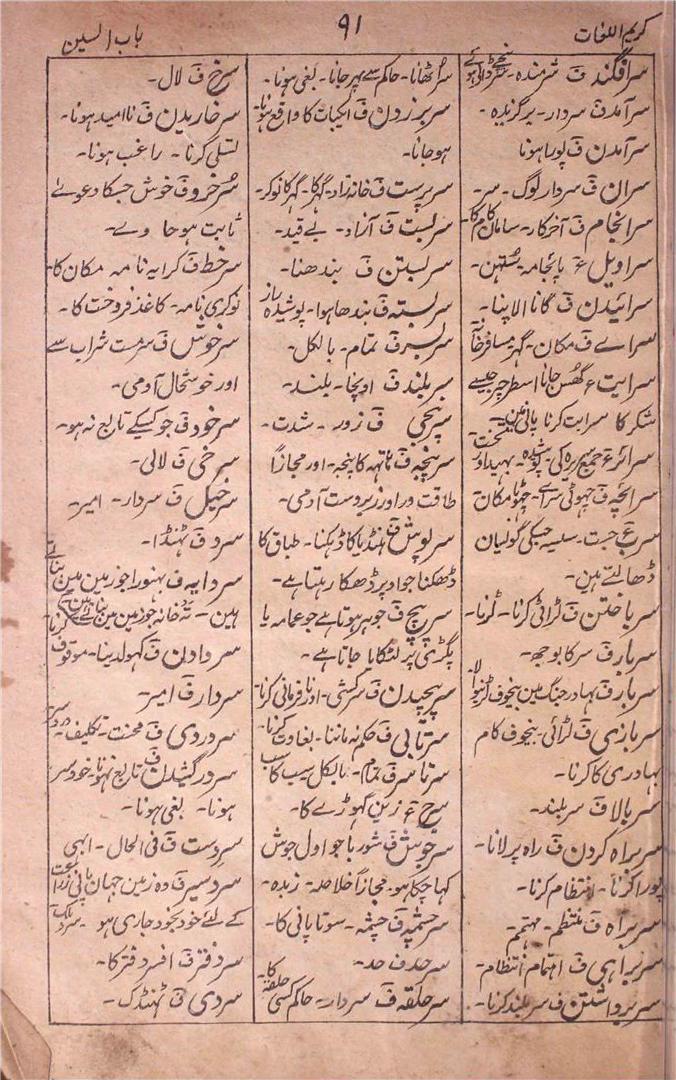 کریم اللغات
۹۱
باب السین
سرافگند ف شرمندہ۔ نیچے ڈالی ہوئے
سرآمد ف سردار۔ برگزیدہ۔
سرآمدن ف پورا ہونا
سران ف سردار لوگ۔ سر۔
سرانجام ف آخرکار۔ سامان کام کا
سراویل ع پائجامہ۔ ستہن۔
سرائیدن ف گانا الاپنا۔
سراے ف مکان۔ گہر مسافرخانہ
سرایت ع گھس جانا اسطرح جیسے
شکر کا سرایت کرنا پانی مین۔
سرائر ع جمع سریرہ کی۔ پوشیدہ۔ بہید اور
سرائچہ ف چہوٹی سراے۔ چہوٹا مکان
سرب ع جست۔ سیسہ جسکی گولیان
ڈھالتے ہین۔
سرباختن ف لڑائی کرنا۔ لڑنا۔
سربار ف سر کا بوجھ۔
سرباز ف بہادر جنگ مین بیخوف لڑنیوالا
سربازی ف لڑائی۔ بیخوف کام
بہادری کا کرنا۔
سربالا ف سربلند۔
سربراہ کردن ف راہ پر لانا۔
پورا کرنا۔ انتظام کرنا۔
سربراہ ف منتظم۔ مہتمم۔
سربراہی ف اہتمام انتظام۔
سربرداشتن ف سر بلند کرنا۔
سر اُٹھانا۔ حاکم سے پہر جانا۔ بغی ہونا۔
سربرزدن ف ایکبات کا واقع ہونا۔
ہو جانا۔
سرپرست ف خانہ زاد۔ گہر کا۔ گہر کا نوکر۔
سربست ف آزاد۔ بے قید۔
سربستن ف بندھنا۔
سربستہ ف بندھا ہوا۔ پوشیدہ راز
سربسر ف تمام۔ بالکل۔
سربلند ف اونچا۔ بلند۔
سرپنجی ف زور۔ شدت۔
سرپنجہ ف ہاتہہ کا پنجہ۔ اور مجازاً
طاقت ور اور زبردست آدمی۔
سرپوش ف ہنڈیا کا ڈہکنا۔ طباق کا
ڈھکنا جو اوپر ڈھکا رہتا ہے۔
سرپیچ ف جوہر ہوتا ہے جو عمامہ یا
پگڑی پر لٹکایا جاتا ہے۔
سرپیچیدن ف سرکشی۔ اور نافرمانی کرنا
سرتابی ف حکم نہ ماننا۔ بغاوت کرنا۔
سرتاسر ف تمام۔ بالکل سب کا سب
سرج ع زین گہوڑے کا۔
سرجوش ف شوربا جو اول جوش
کہا چکا ہو۔ مجازاً خلاصہ۔ زبدہ۔
سرچشمہ ف چشمہ۔ سوتا پانی کا۔
سرحد ف حد۔
سرحلقہ ف سردار۔ حاکم کسی حلقہ کا۔
سرخ ف لال۔
سرخاریدن ف ناامید ہونا۔
تسلی کرنا۔ راغب ہونا۔
سُرخرو ف خوش جسکا دعوے
ثابت ہو جاوے۔
سرخط ف کرایہ نامہ مکان کا۔
نوکری نامہ۔ کاغذ فروخت کا۔
سرخوش ف سرمست شراب سے
اور خوشحال آدمی۔
سرخود ف جو کسیکے تابع نہ ہو۔
سرخی ف لالی۔
سرخیل ف سردار۔ امیر۔
سرد ف ٹھنڈا۔
سردابہ ف بہنورا جو زمین مین بناتے
ہین۔ تہ خانہ جو زمین مین بناتے ہین
سردادن ف کہول دینا۔ موقوف کرنا
سردار ف امیر۔
سردردی ف محنت۔ تکلیف۔ درد سر
سردرکشیدن ف تابع نہونا۔ خود سر
ہونا۔ بغی ہونا۔
سردست ف فی الحال۔ ابھی
سردسیر ف وہ زمین جہان پانی زراعت
کے لئے خود بخود جاری ہو۔ سرد ملک
سردفتر ف افسر دفتر کا۔
سردی ف ٹھنڈک۔